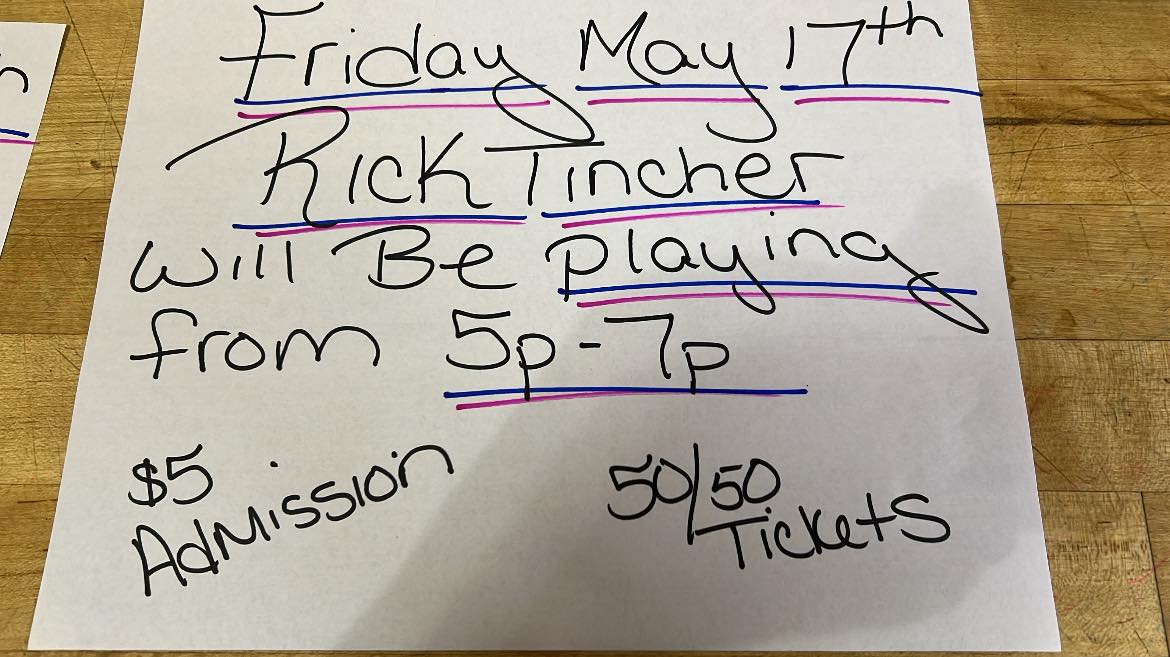 Friday May 17th
Rick Tincher
will Be playing
from 5p - 7p
$5
Admission
50/50
Tickets